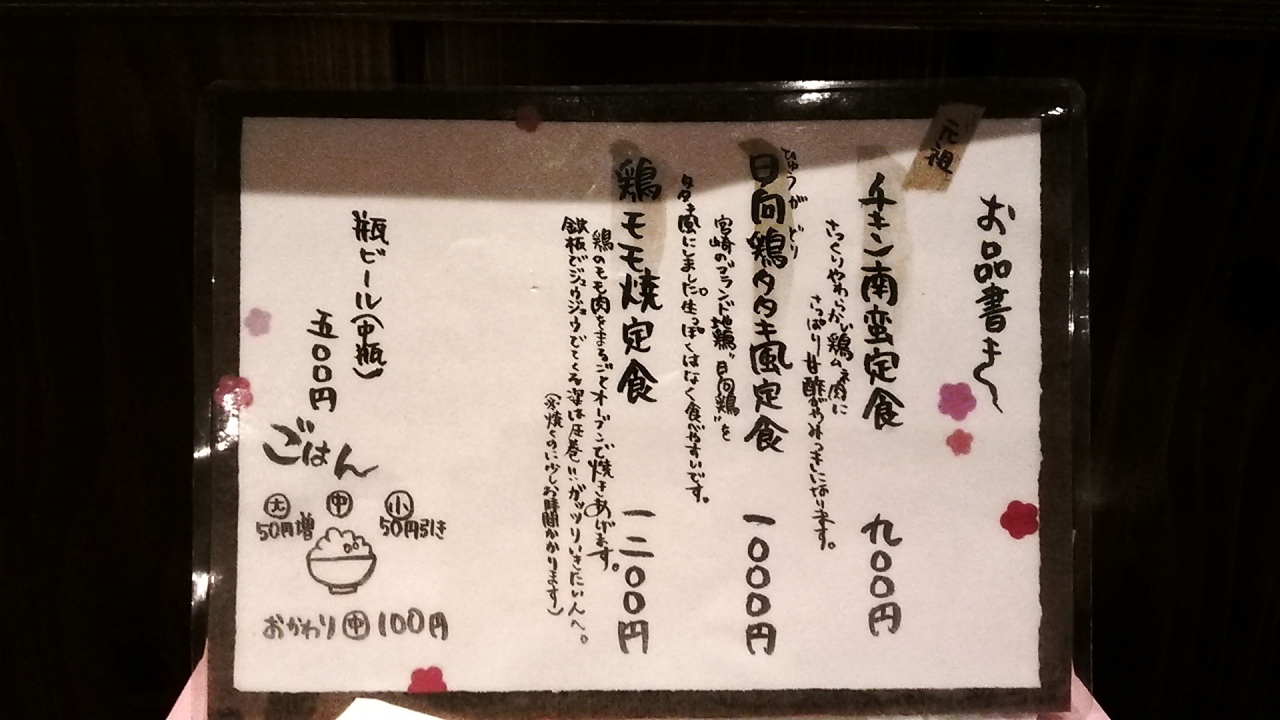 お品書き
元祖
チキン南蛮定食 九〇〇円
さっくりやわらかい鶏ムネ肉に
さっぱり甘酢がやみつきになります。
日向鶏タタキ風定食 一〇〇〇円
ひゅうがどり
宮崎のブランド地鶏"日向鶏"を
タタキ風にしました。生っぽくはなく食べやすいです。
鶏モモ焼定食 一二〇〇円
鶏のモモ肉をまるごとオーブンで焼きあげます。
鉄板でジュウジュウでてくる姿は圧巻!!ガッツリいきたい人へ。
焼くのに少しお時間かかります)
瓶ビール(中瓶)
五〇〇円
ごはん
大 中 小
50円増 50円引き
おかわり中100円